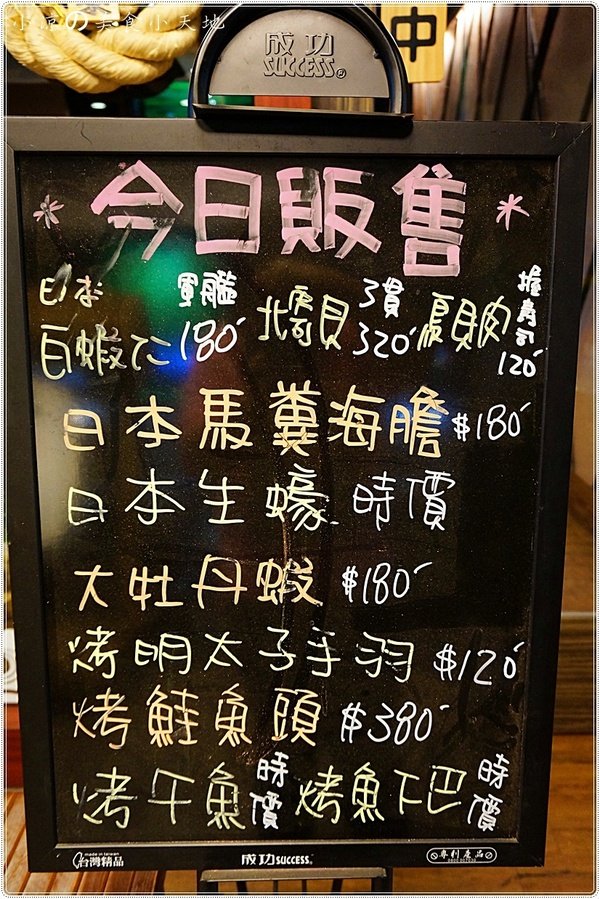 小涼の美食小天地
中
成功
SUCCESS®
*今日販售*
日本白蝦仁 軍艦 180
北寄貝 3貫 320
扇貝肉 握壽司 120
日本馬糞海膽 $180
日本生蠔 時價
大牡丹蝦 $180
烤明太子手羽 $120
烤鮭魚頭 $380
烤午魚 時價 烤魚下巴 時價
made in taiwan
台灣精品
成功SUCCESS®
專利產品